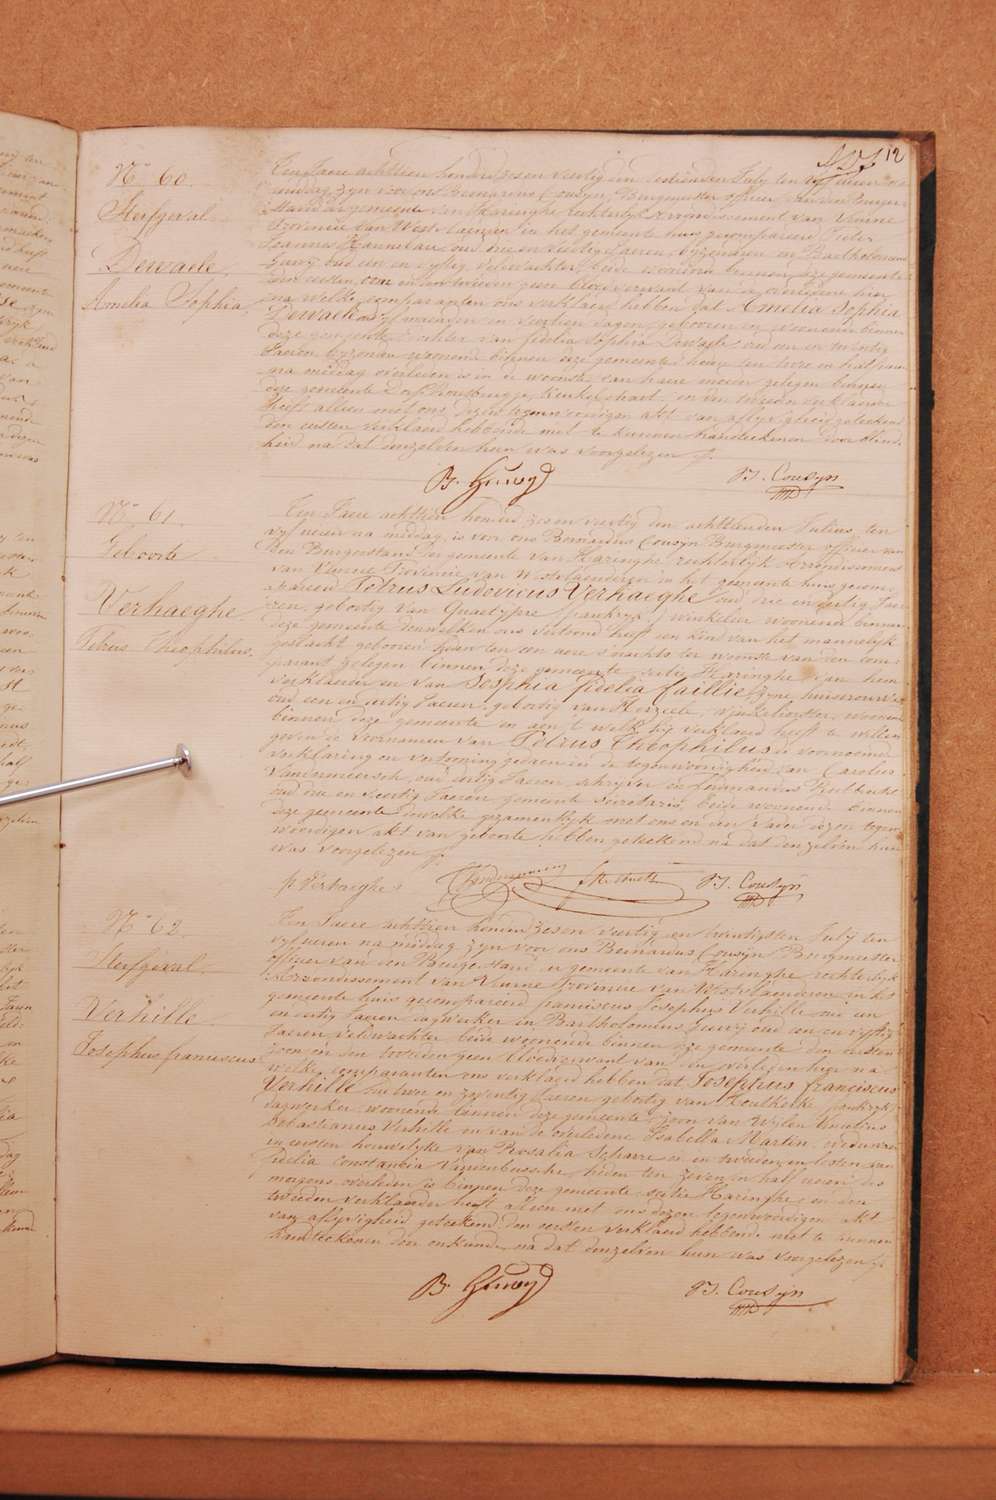 12
N° 60.
Sterfgeval
Dewaele
Amelia Sophia
Een Jaere achttien honderd zes en veertig den
amidag, zyn voor ons Bernardus Cousyn, Burgmeester officier van den Burger
Stand der gemeente van Haringhe rechterlyk Arrondissement van Veurne
Provincie van West-Vlaenderen in het gemeente huis gecompareerd Pieter
Joannes oud drie en Jaeren, en Bartholomeus
Huwyj oud een en vyftig veldwachter beide woonende binnen deze gemeente
den eersten en den tweeden geen bloedverwant van de overledene hier
na welke comparanten ons verklaerd hebben dat Amelia Sophia
Dewaele oud maenden en veertien dagen, geboren en woonende binnen
deze gemeente dochter van fidelia Sophia Dewaele oud een en twintig
Jaeren, byzonder woonende binnen deze gemeente, heden ten twee en half ure
na middag overleden is in de woonste van haere moeder gelegen binnen
deze gemeente en den tweeden verklaerder
heeft alleen met ons dezen tegenwoordigen akt van aflyvigheid geteekend
den eersten verklaerd hebbende niet te kunnen handteekenen door blind
heid na dat denzelven hun was voorgelezen
B. Huwyj
B. J. Cousyn
N° 61.
Geboorte
Verhaeghe
Petrus Theophilus.
Een Jaere achttien honderd zes en veertig den achttienden Julius, ten
vyf ueren na middag, is voor ons Bernardus Cousyn Burgmeester officier van
den Burgerstand der gemeente van Haringhe, rechterlyk Arrondissement
van Veurne Provincie van Westvlaenderen in het gemeente huis gecom-
pareerd Petrus Ludovicus Verhaeghe oud drie en dertig Jae-
ren, geboortig van Quaetypre, frankryk, winkelier woonende binnen
deze gemeente denwelken ons vertoond heeft een kind van het mannelyk
geslacht geboren heden ten een ure s'nachts ter woonste van den com-
parant gelegen binnen deze gemeente sectie Haringhe, van hem
verklaerder en van Sophia fidelia Caillie zyne huisvrouwe
oud een en dertig Jaeren, geboortig van Herzeele, winkelierster, woonende
binnen deze gemeente en aen 't welk hy verklaerd heeft te willen
geven de voornamen van Petrus Theophilus de voornoemde
verklaring en vertooning gedaen in de tegenwoordigheid van Carolus
Vandermeersch, oud dertig Jaeren schryver en ferdinandus
oud drie en veertig Jaeren, gemeente secretaris, beide woonende binnen
deze gemeente dewelke gezamentlyk met ons en den vader dezen tegen-
woordigen akt van geboorte hebben geteekend na dat denzelven hun
was voorgelezen
p. Verhaeghe
B. J. Cousyn
N° 62.
Sterfgeval.
Verhille
Josephus franciscus
Een Jaere achttien honderd zes en veertig en twintigsten July ten
vyf ueren na middag, zyn voor ons Bernardus Cousyn Burgmeester
officier van den Burgerstand der gemeente van Haringhe rechterlyk
Arrondissement van Veurne provincie van Westvlaenderen in het
gemeente huis gecompareerd franciscus Josephus Verhille oud een
en dertig Jaeren dagwerker en Bartholomeus Huwyj oud een en vyftig
Jaeren veldwachter beide woonende binnen deze gemeente den eersten
zoon en den tweeden geen bloedverwant van den overleden hier na
welke comparanten ons verklaerd hebben dat Josephus franciscus
Verhille oud twee en zeventig Jaeren geboortig van Houtkerke, frankryk
dagwerker, woonende binnen deze gemeente zoon van wylen
Sebastianus Verhille en van de overledene Isabella Martin, weduwaer
in eersten houwelyke van Rosalia Scharre en in tweeden en lesten van
fidelia Constantia Vandenbussche, heden ten zeven en half ueren des
morgens overleden is binnen deze gemeente sectie Haringhe; en den
tweeden verklaerder heeft alleen met ons dezen tegenwoordigen akt
van aflyvigheid geteekend den eersten verklaerd hebbende niet te kunnen
handteekenen door onkunde, na dat denzelven hun was voorgelezen
B. Huwyj
B. J. Cousyn